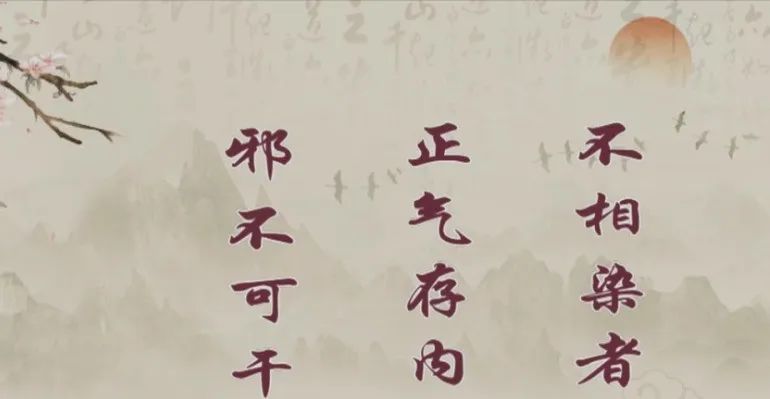 不相染者
正气存内
邪不可干